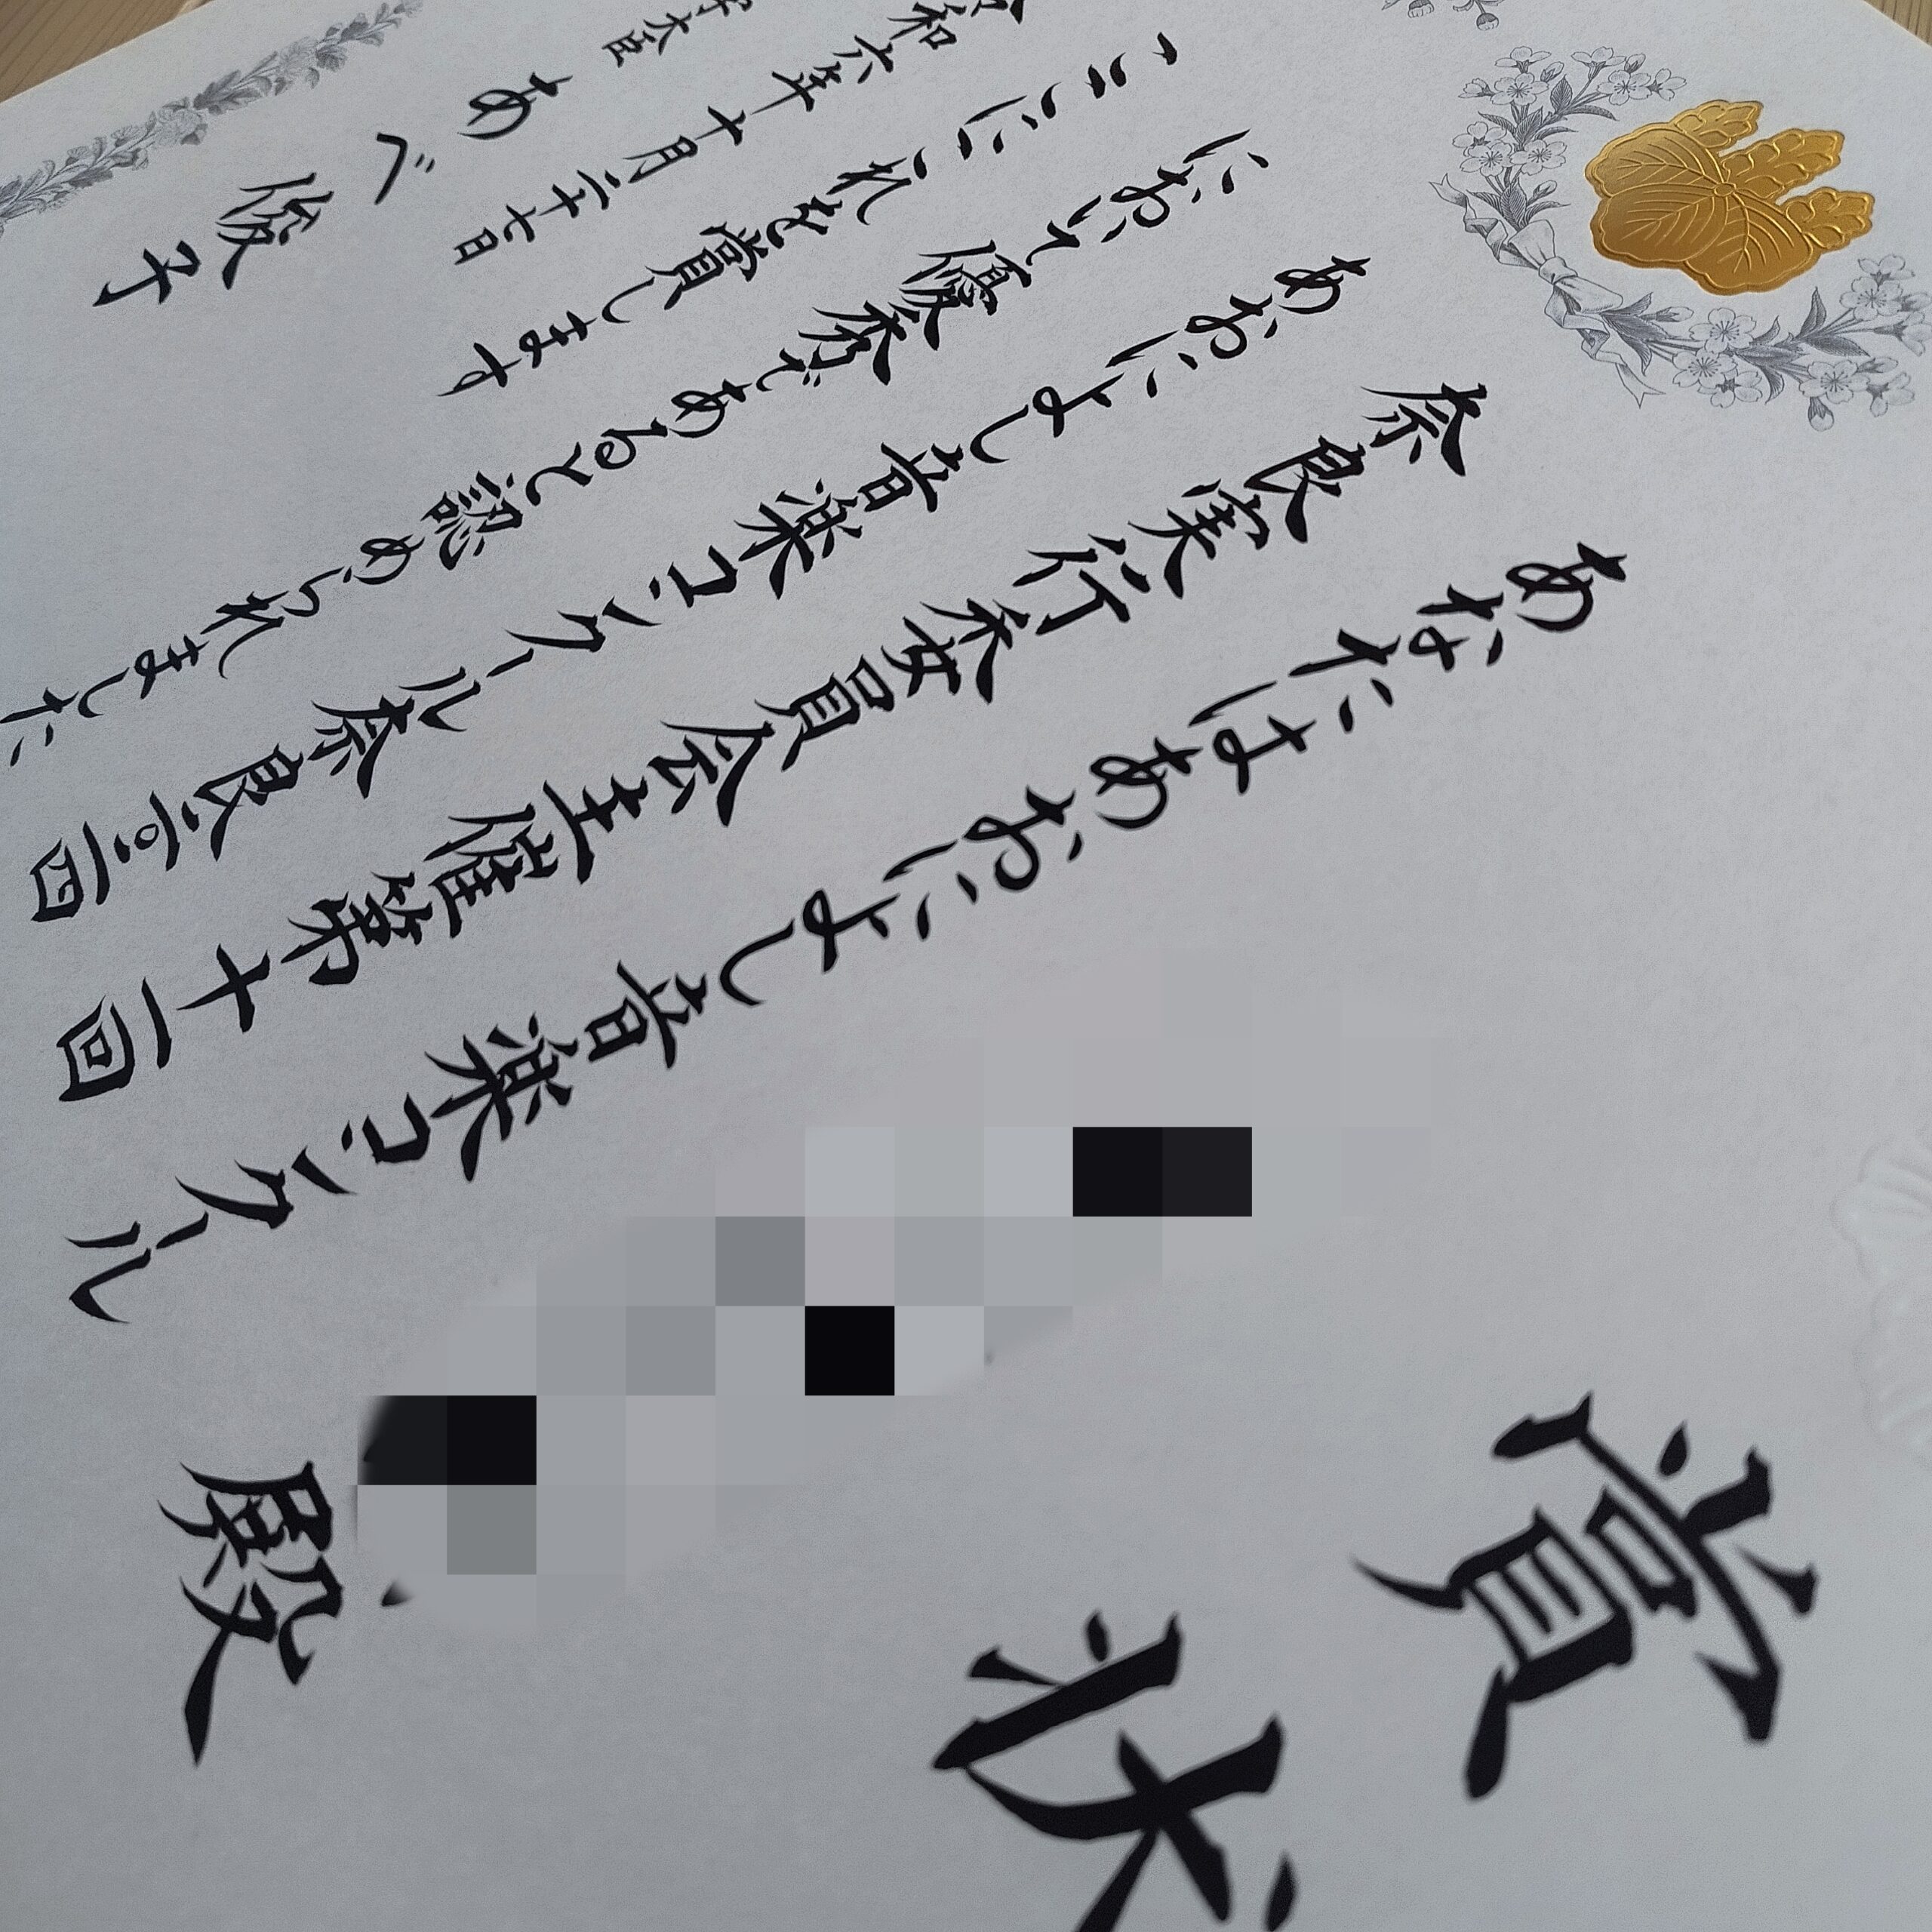 賞状
殿
あなたはあおによし音楽コンクール
奈良実行委員会主催第十一回
あおによし音楽コンクール奈良二〇二四
において優秀であると認められました
ここにこれを賞します
令和六年十月二十七日
学大臣 あべ俊子